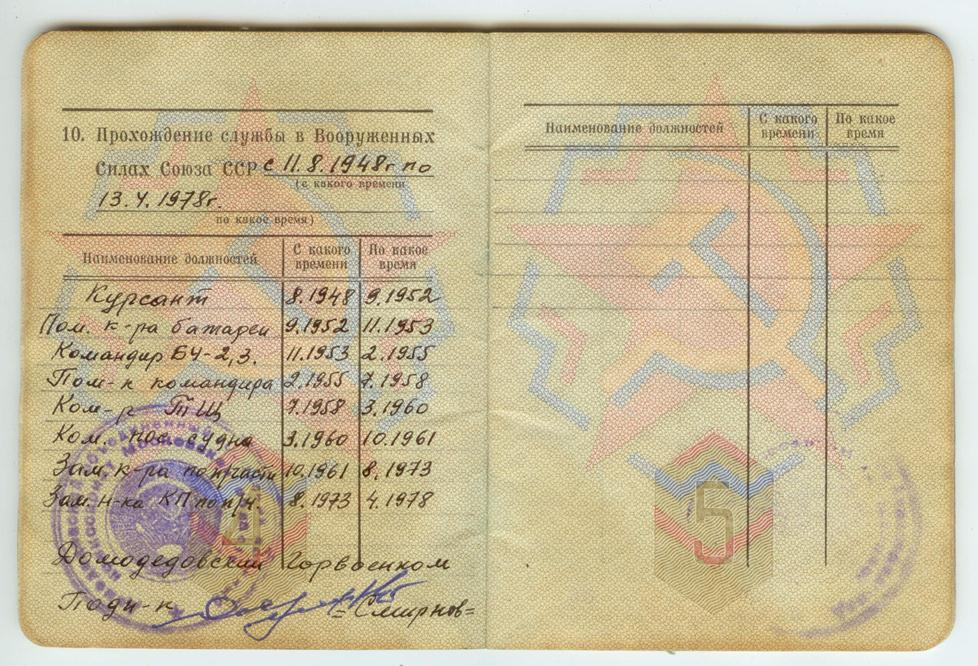 10. Прохождение службы в Вооруженных
Силах Союза ССР с 11.8.1948г по
(с какого времени
13.4.1978г.
по какое время)
Наименование должностей С какого времени По какое время
Курсант 8.1948 9.1952
Пом. к-ра батареи 9.1952 11.1953
Командир БЧ-2,3. 11.1953 2.1955
Пом-к командира 2.1955 7.1958
Ком-р ТЩ 7.1958 3.1960
Ком. пос. судна 3.1960 10.1961
Зам. к-ра по п/части 10.1961 8.1973
Зам. н-ка КП по п/ч. 8.1973 4.1978
Домодедовский Горвоенком
Подп-к =Смирнов=
4
Наименование должностей С какого времени По какое время
5